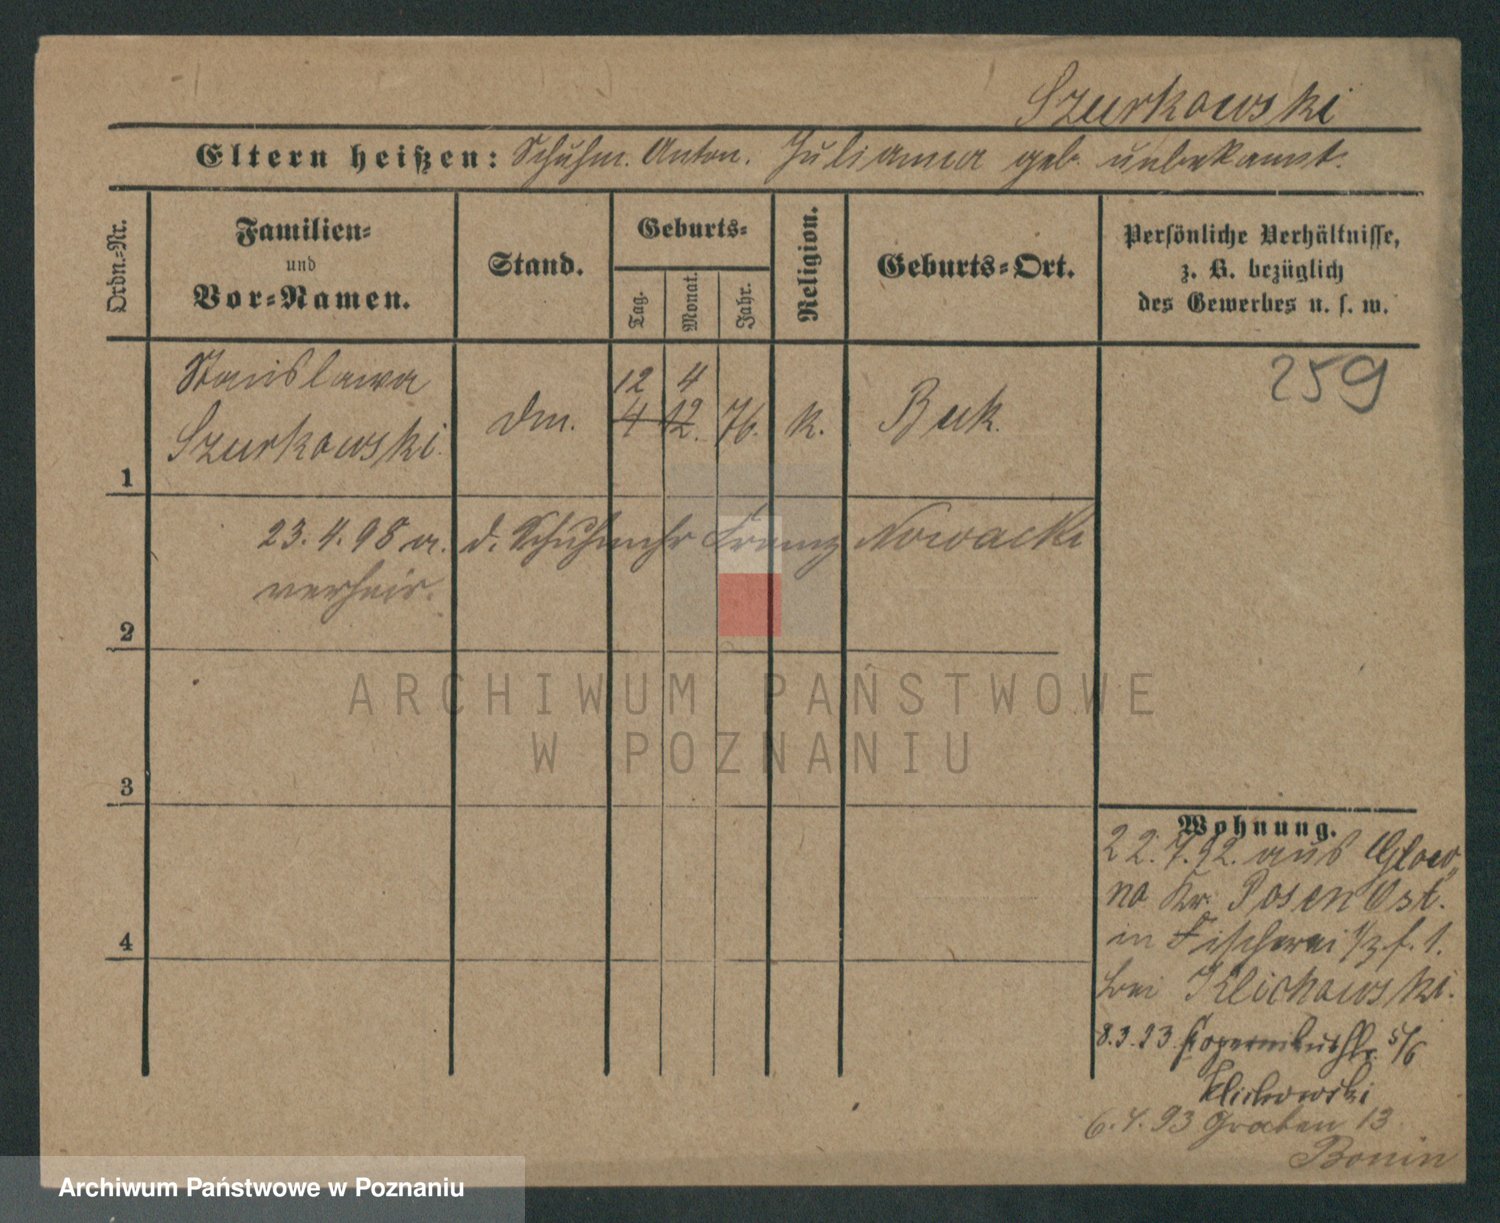 Szurkowski
Eltern heißen: Schuhm. Anton. Julianna geb. unbekannt.
Ordn.-Nr.
Familien-
und
Vor-Namen.
Stand.
Geburts-
Tag.
Monat.
Jahr.
Religion.
Geburts-Ort.
Persönliche Verhältnisse,
z. B. bezüglich
des Gewerbes u. s. w.
259
Stanislawa
12 4
Szurkowski.
Dm.
4 12. 76.
k.
Buk.
1
23. 4. 98 a. d. Franz Nowacki
verheir.
2
ARCHIWUM PAŃSTWOWE
W POZNANIU
3
Wohnung.
22. 7. 92. aus Glow,,
no Kr. Posen Ost.
4
in Fischerei 1.
bei Klichowski.
8. 3. 93 5/6
Klichowski
6. 4. 93 Graben 13
Bonin
Archiwum Państwowe w Poznaniu